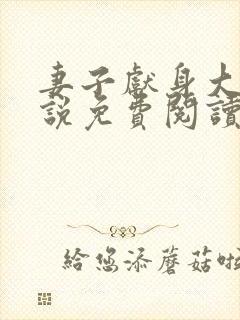 妻子獻身大
說免費閱讀
給您添蘑菇啦